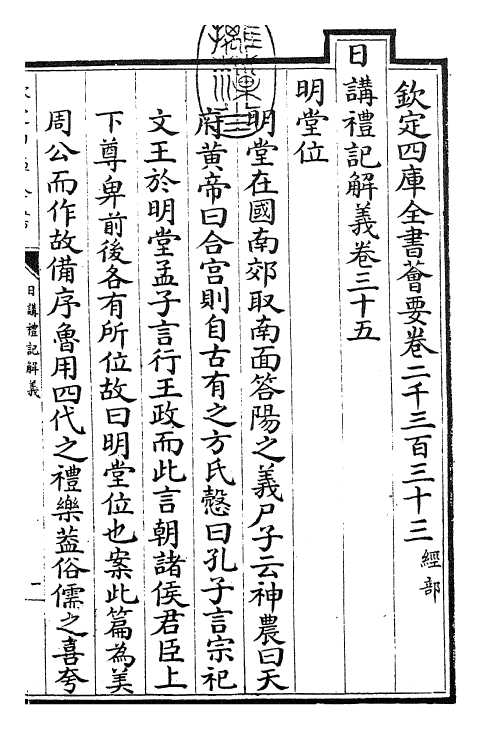 欽定四庫全書薈要卷二千三百三十三 經部
日講禮記解義卷三十五
明堂位
明堂在國南郊取南面答陽之義尸子云神農曰天
府黃帝曰合宮則自古有之方氏慤曰孔子言宗祀
文王於明堂孟子言行王政而此言朝諸侯君臣上
下尊卑前後各有所位故曰明堂位也案此篇為美
周公而作故備序魯用四代之禮樂葢俗儒之喜夸
日講禮記解義